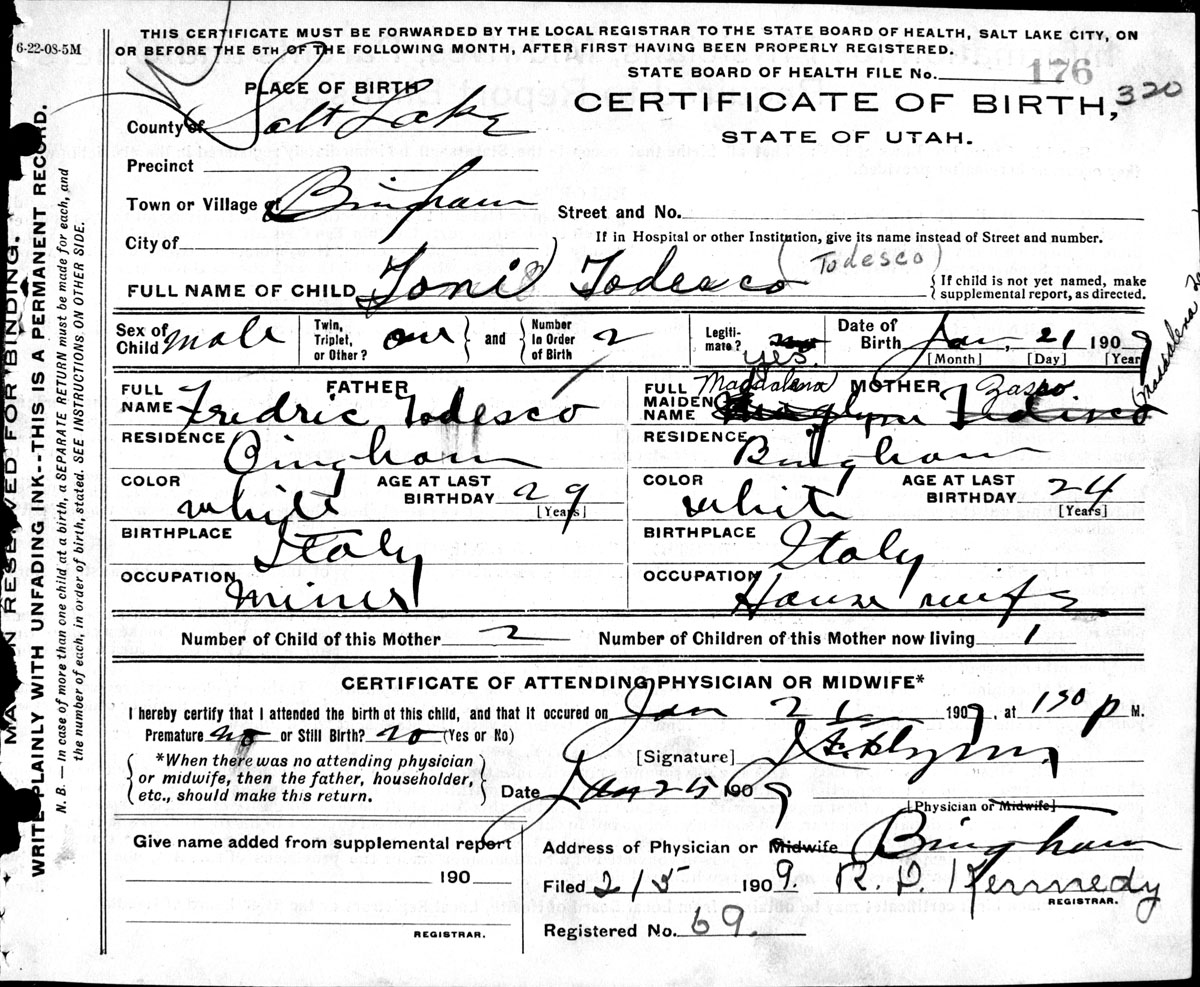 6-22-08-5M
THIS CERTIFICATE MUST BE FORWARDED BY THE LOCAL REGISTRAR TO THE STATE BOARD OF HEALTH, SALT LAKE CITY, ON
OR BEFORE THE 5TH OF THE FOLLOWING MONTH, AFTER FIRST HAVING BEEN PROPERLY REGISTERED.
STATE BOARD OF HEALTH FILE No. 176
PLACE OF BIRTH
CERTIFICATE OF BIRTH, 320
County of Salt Lake
STATE OF UTAH.
Precinct
Town or Village of Bingham
Street and No.
City of
If in Hospital or other Institution, give its name instead of Street and number.
(Todesco)
FULL NAME OF CHILD Toni Todesco
{ If child is not yet named, make
supplemental report, as directed.
Sex of Child male
Twin, Triplet, or Other? one
and
Number in Order of Birth 2
Legiti-mate? no yes.
Date of Birth Jan, 21 1909
[Month] [Day] [Year]
FATHER
FULL NAME Fredric Todesco
RESIDENCE Bingham
COLOR white
AGE AT LAST BIRTHDAY 29
[Years]
BIRTHPLACE Italy
OCCUPATION Miner
MOTHER
FULL MAIDEN NAME Maddalena Zasso Todisco
RESIDENCE Bingham
COLOR white
AGE AT LAST BIRTHDAY 24
[Years]
BIRTHPLACE Italy
OCCUPATION House wife
Number of Child of this Mother 2 Number of Children of this Mother now living 1
CERTIFICATE OF ATTENDING PHYSICIAN OR MIDWIFE*
I hereby certify that I attended the birth of this child, and that it occured on Jan 21 1909, at 130 P M.
Premature no or Still Birth? no (Yes or No)
{ *When there was no attending physician
or midwife, then the father, householder,
etc., should make this return. }
[Signature]
Date Jan 25 1909
[Physician or Midwife]
Give name added from supplemental report
Address of Physician or Midwife Bingham
190
Filed 2/5 1909. R. P. Kennedy
REGISTRAR.
REGISTRAR.
Registered No. 69.
MARGIN RESERVED FOR BINDING.
WRITE PLAINLY WITH UNFADING INK--THIS IS A PERMANENT RECORD.
N. B. — In case of more than one child at a birth, a SEPARATE RETURN must be made for each, and
the number of each, in order of birth, stated. SEE INSTRUCTIONS ON OTHER SIDE.